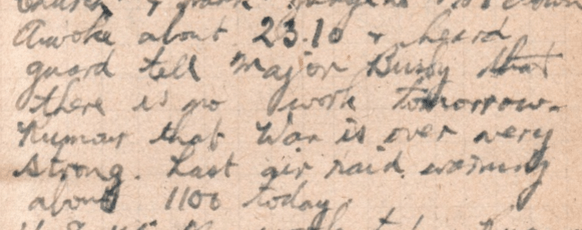 Awoke about 23.10 & heard
guard tell Major Busby that
there is no work tomorrow.
Rumour that War is over very
strong. Last air raid warning
about 1100 today.